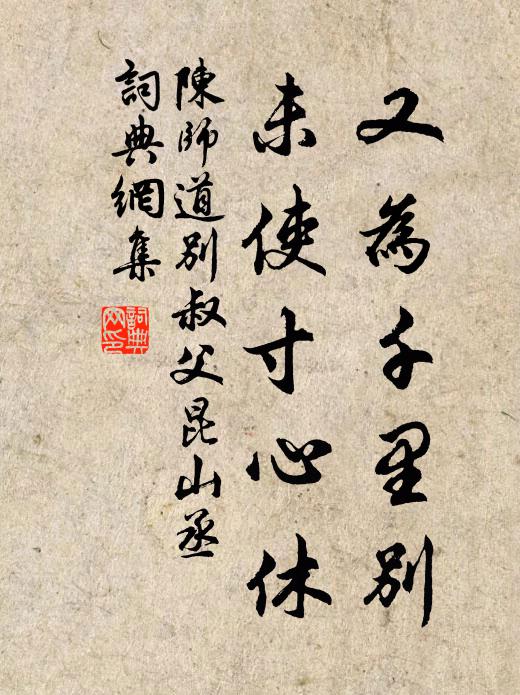 又為千里别
未使寸心休
陳師道别叔父昆山丞
詞典網集
詞典
网印